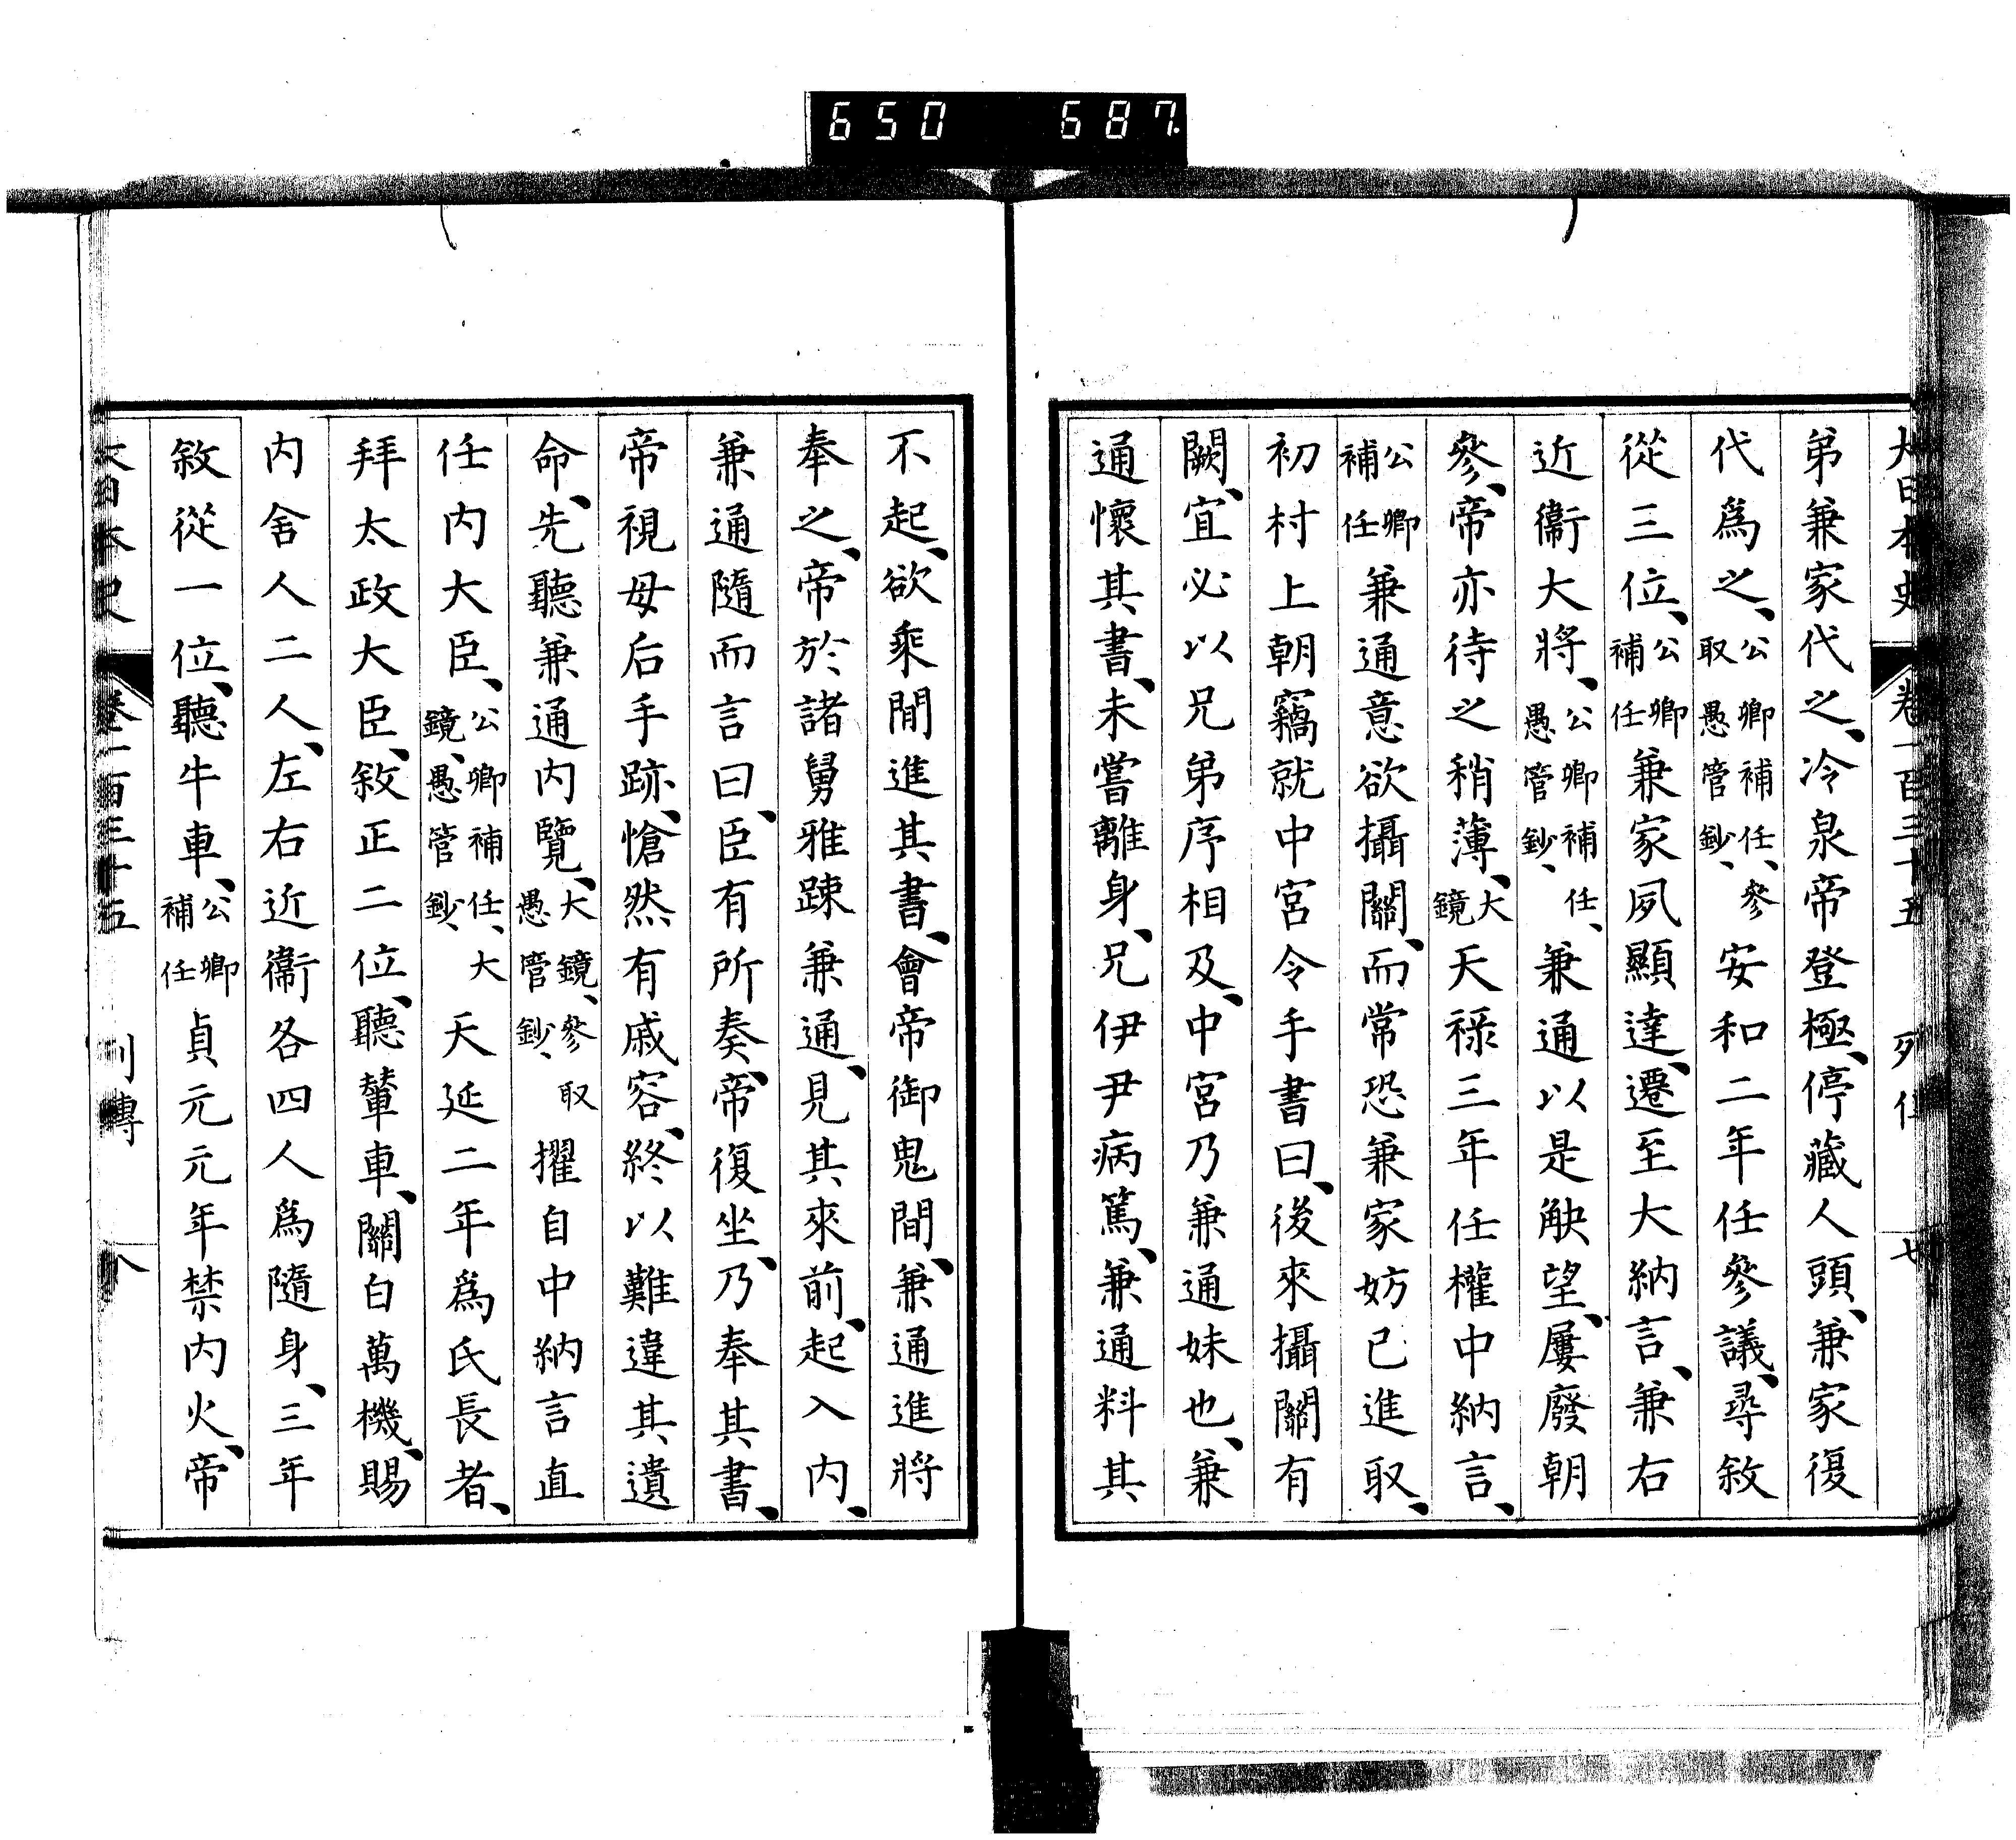 650 687.
大日本史 卷一百三十五 列傳 七
弟兼家代之、冷泉帝登極、停藏人頭、兼家復
代爲之、公卿補任、參取愚管鈔、安和二年任參議、尋敘
從三位、公卿補任兼家夙顯達、遷至大納言、兼右
近衞大將、公卿補任、愚管鈔、兼通以是觖望、屢廢朝
參、帝亦待之稍薄、大鏡天祿三年任權中納言、
公卿補任兼通意欲攝關、而常恐兼家妨已進取、
初村上朝竊就中宮令手書曰、後來攝關有
闕、宜必以兄弟序相及、中宮乃兼通妹也、兼
通懷其書、未嘗離身、兄伊尹病篤、兼通料其
不起、欲乘閒進其書、會帝御鬼間、兼通進將
奉之、帝於諸舅雅踈兼通、見其來前、起入內、
兼通隨而言曰、臣有所奏、帝復坐、乃奉其書、
帝視母后手跡、愴然有戚容、終以難違其遺
命、先聽兼通內覽、大鏡、參取愚管鈔、擢自中納言直
任內大臣、公卿補任、大鏡、愚管鈔、天延二年爲氏長者、
拜太政大臣、敘正二位、聽輦車、關白萬機、賜
內舍人二人、左右近衞各四人爲隨身、三年
敘從一位、聽牛車、公卿補任貞元元年禁內火、帝
大日本史 卷一百三十五 列傳 八